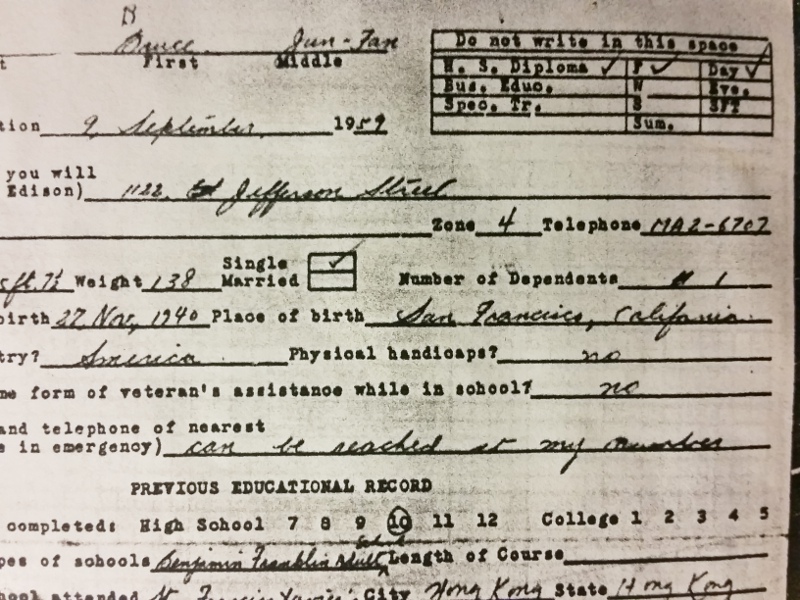 Bruce Jun-Fan
t First Middle
Do not write in this space
H. S. Diploma ✓ F ✓ Day ✓
Bus. Educ. W Eve.
Spec. Tr. S SFT
Sum.
tion 9 September, 1959
you will
Edison) 1122 Jefferson Street
Zone 4 Telephone MA2-6707
5ft.7½ Weight 138 Single ✓
Married
Number of Dependents # 1
birth 27 Nov, 1940 Place of birth San Francisco, California
try? America Physical handicaps? no
me form of veteran's assistance while in school? no
and telephone of nearest
e in emergency) can be reached at my number
PREVIOUS EDUCATIONAL RECORD
completed: High School 7 8 9 10 11 12 College 1 2 3 4 5
School
pes of schools Benjamin Franklin Adult Length of Course
hool attended St. Francis Xavier City Hong Kong State Hong Kong